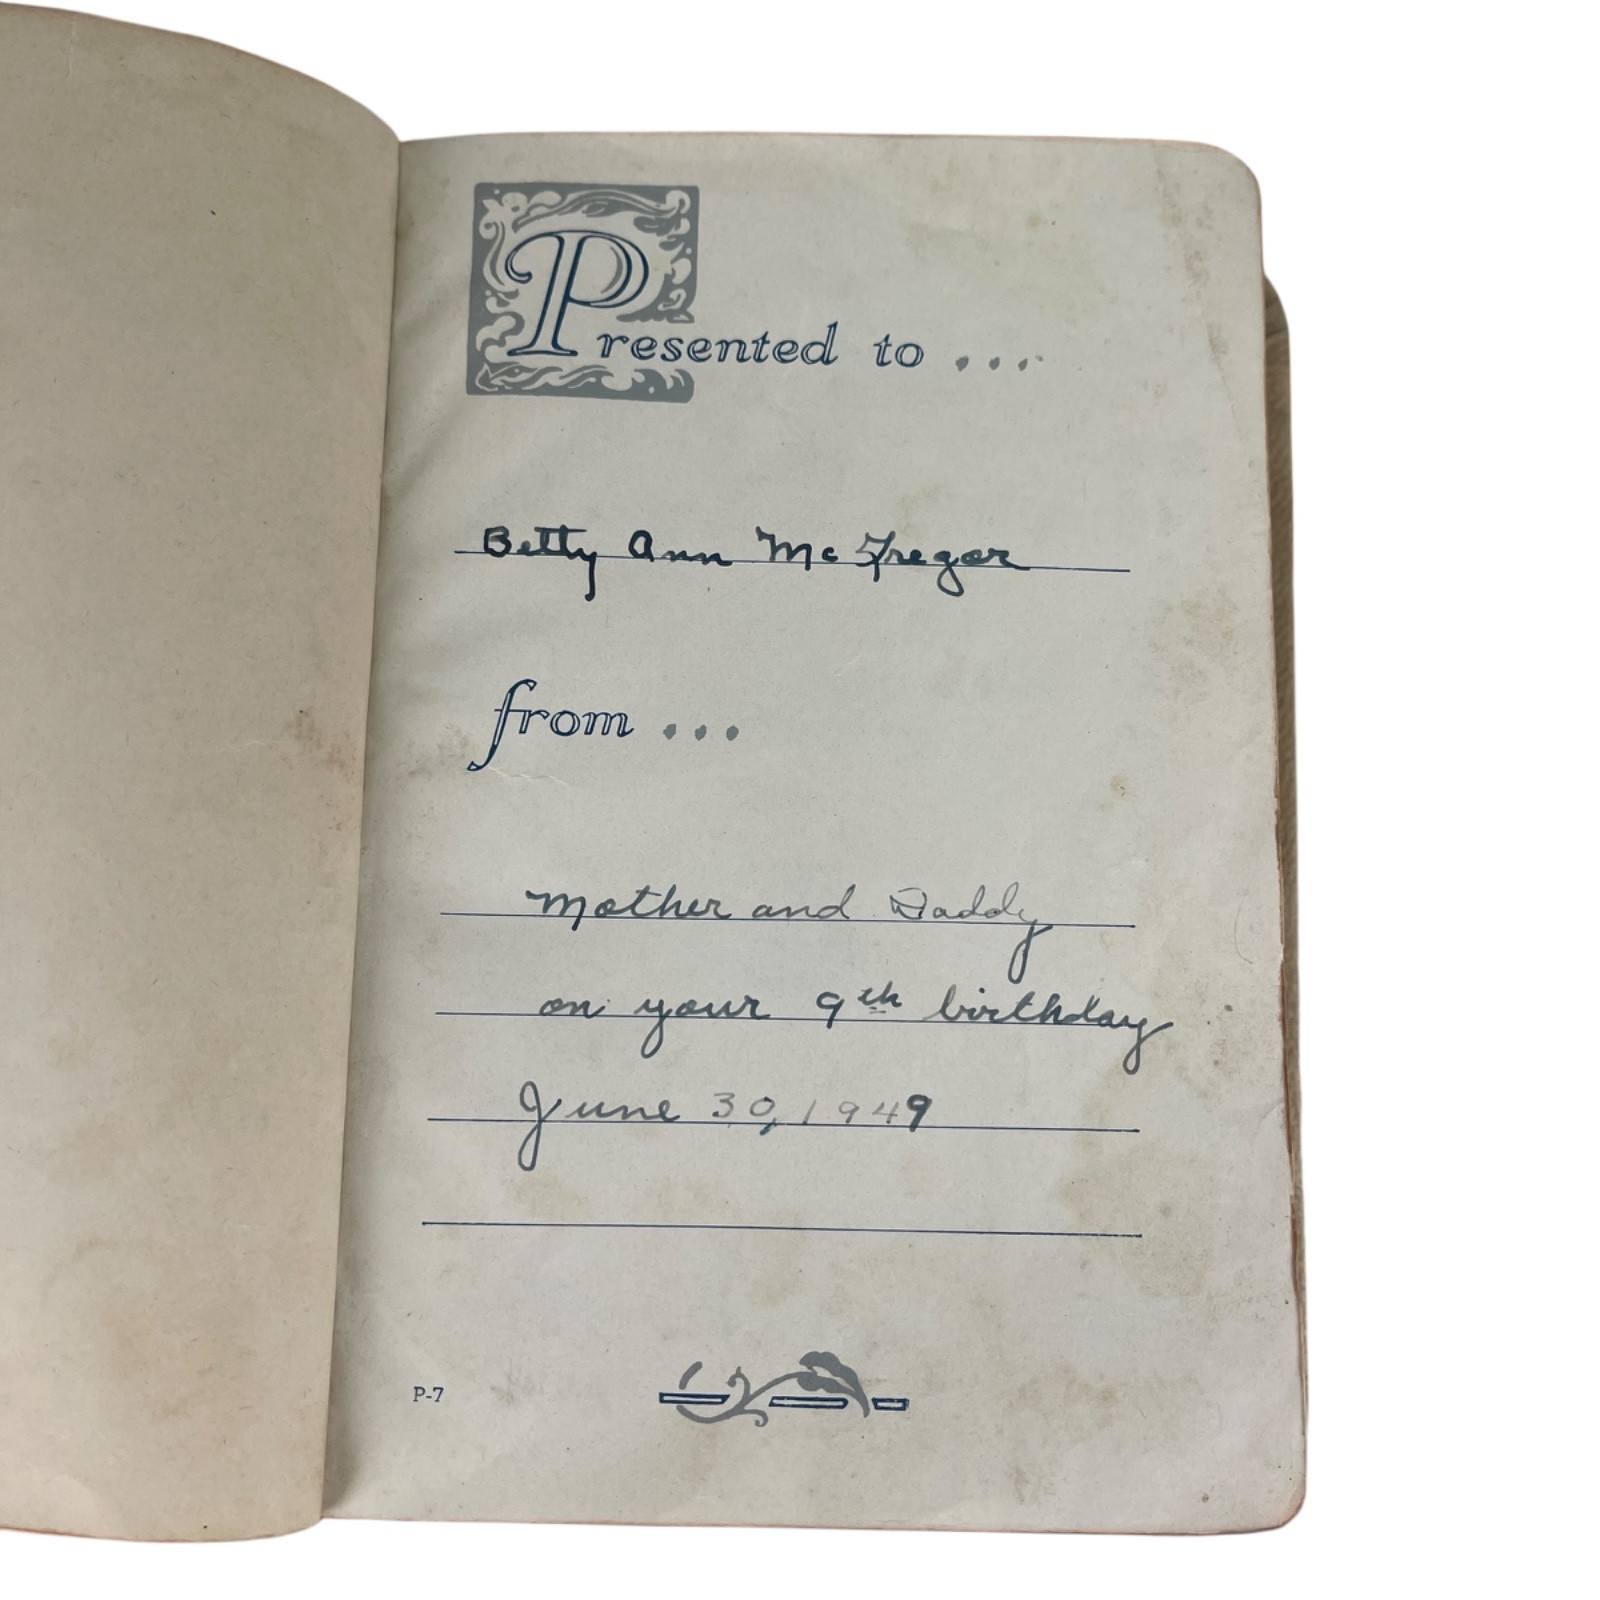 Presented to ...
Betty Ann McGregor
from ...
Mother and Daddy
on your 9th birthday
June 30, 1949
P-7